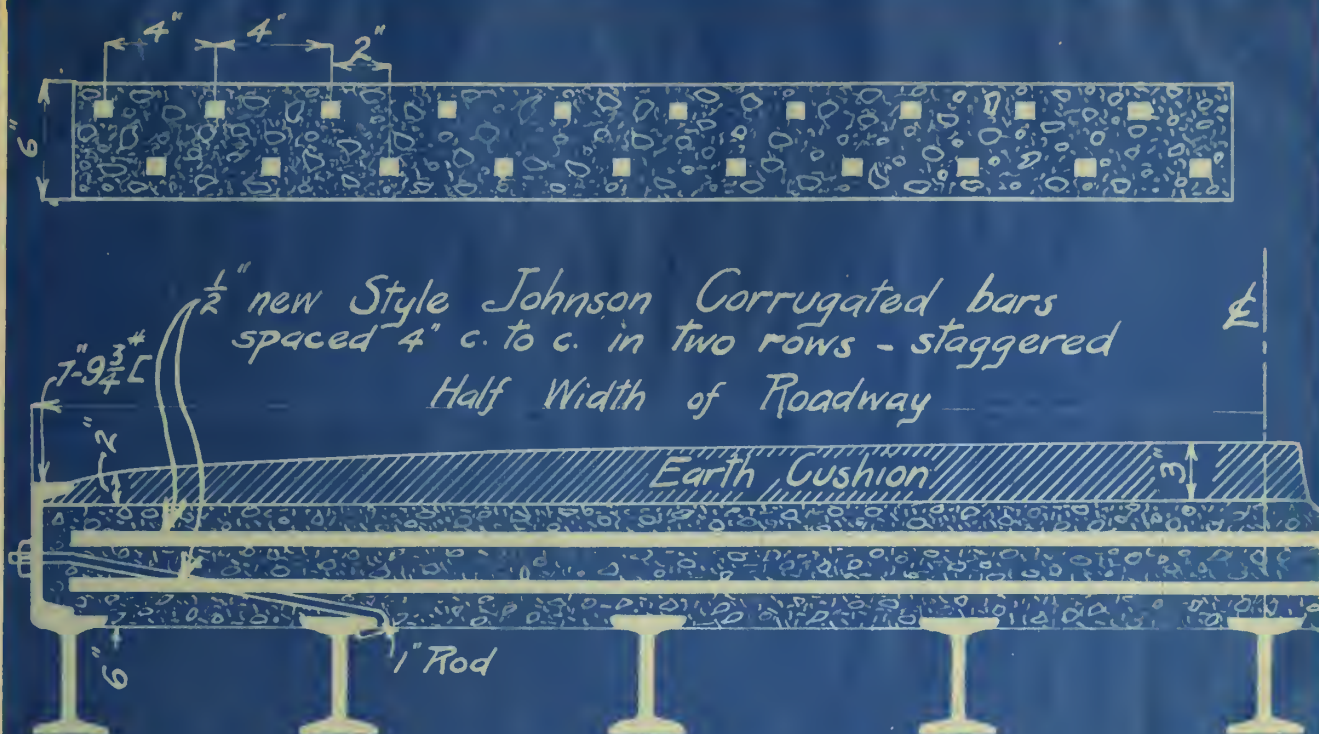 4" 4" 2"
6"
½" new Style Johnson Corrugated bars
spaced 4" c. to c. in two rows - staggered
℄
7"-9¾# [
Half Width of Roadway
2"
Earth Cushion
3"
6"
1" Rod